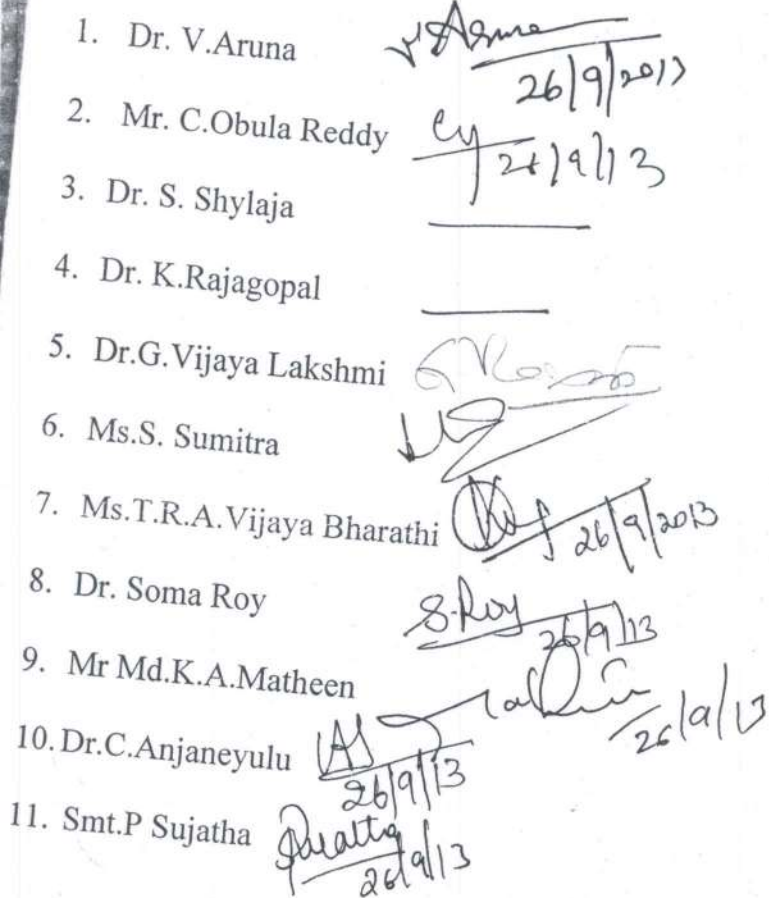 1. Dr. V.Aruna
26/9/2013
2. Mr. C.Obula Reddy
26/9/13
3. Dr. S. Shylaja
4. Dr. K.Rajagopal
5. Dr.G.Vijaya Lakshmi
6. Ms.S. Sumitra
7. Ms.T.R.A.Vijaya Bharathi 26/9/2013
8. Dr. Soma Roy S.Roy
26/9/13
9. Mr Md.K.A.Matheen
26/9/13
10. Dr.C.Anjaneyulu
26/9/13
11. Smt.P Sujatha
26/9/13